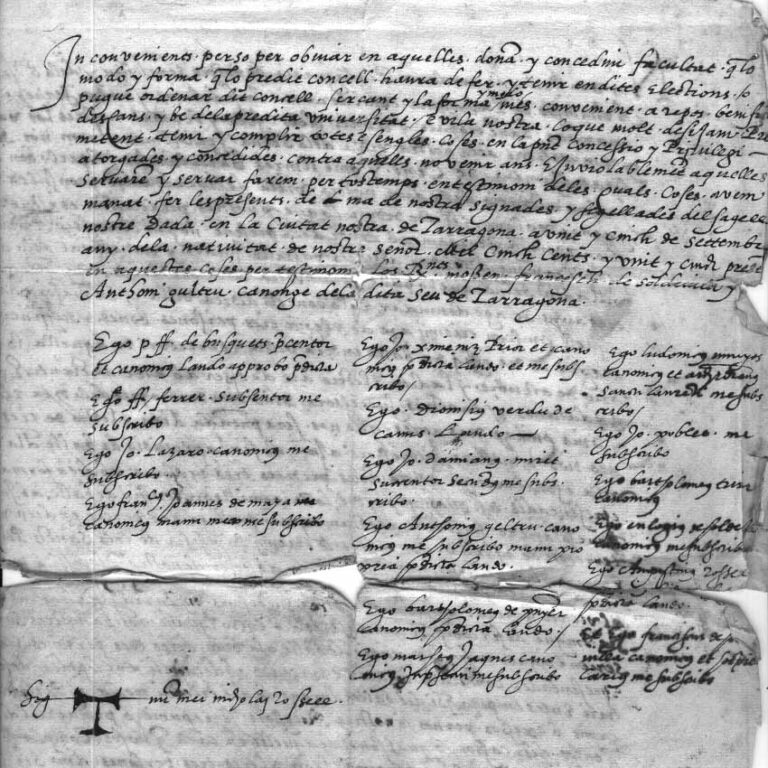 In convenients. perso per obviar en aquelles. donā y concedim facultat. q̄ lo
modo y forma q̄ lo predit concell. haura de fer. y tenir en dites Elections. lo
pugue ordenar dit concell. sercant y la forma y modo mes. convenient. a repos. benefi
dessans. y be dela predita universitat. E vila nostra. Loque molt desijam. Pre
metent. tenir y complir totes E sengles. Coses. en la pn̄t Concessio y Privilegi
atorgades y concedides. contra aquelles. no venir ans. E Inviolablemēt aquelles
servarem y servar farem. per tostemps. en testimoni deles quals. Coses. avem
manat. fer les presents. de ma de nostra signades y segellades del sagell
nostre Dada. en la Ciutat nostra. de Tarragona. a vint y Cinch de Setembre
any. dela. nativitat. de nostre Señor. Mil Cinch Cents. y vint y cinch presēt
en aquestes Coses per testimoni. los R.nts mossen. francesch. de soldevila y
Anthoni gultru. canonge dela dita Seu de Tarragona.
Ego p ff. de busquets p̄centor
et canonicus Laudo approbo p̄dicta
Ego ff. ferrer. Subsentor me
Subscribo
Ego Jo. Lazaro. canonicus me
Subscribo
Ego fran.cus Joannes de maya
canonicus manu mea me subscribo
Ego Jo. ximeniz Prior et cano
nicus p̄dicta laudo. et me subs
cribo /
Ego. Dionisius verdu de
camis. Laudo
Ego Jo. damianus miret
Succentor Secundus me subs.
cribo.
Ego Anthonius geltru. cano
nicus me subscribo manu pro
pria p̄dicta laudo.
Ego bartholomeus de
canonicus p̄dicta Laudo. /
Ego Jaques cano
nicus me subscribo
Ego ludovicus
canonicus et
me subs
cribo /
Ego Jo. robles. me
subscribo
Ego bartholomeus
canonicus
Ego
canonicus me subscribo
Ego Rosse
p̄dicta laudo.
Et Ego franciscus de s
canonicus et
me subscribo
Sig num mei nicholai Rossell.